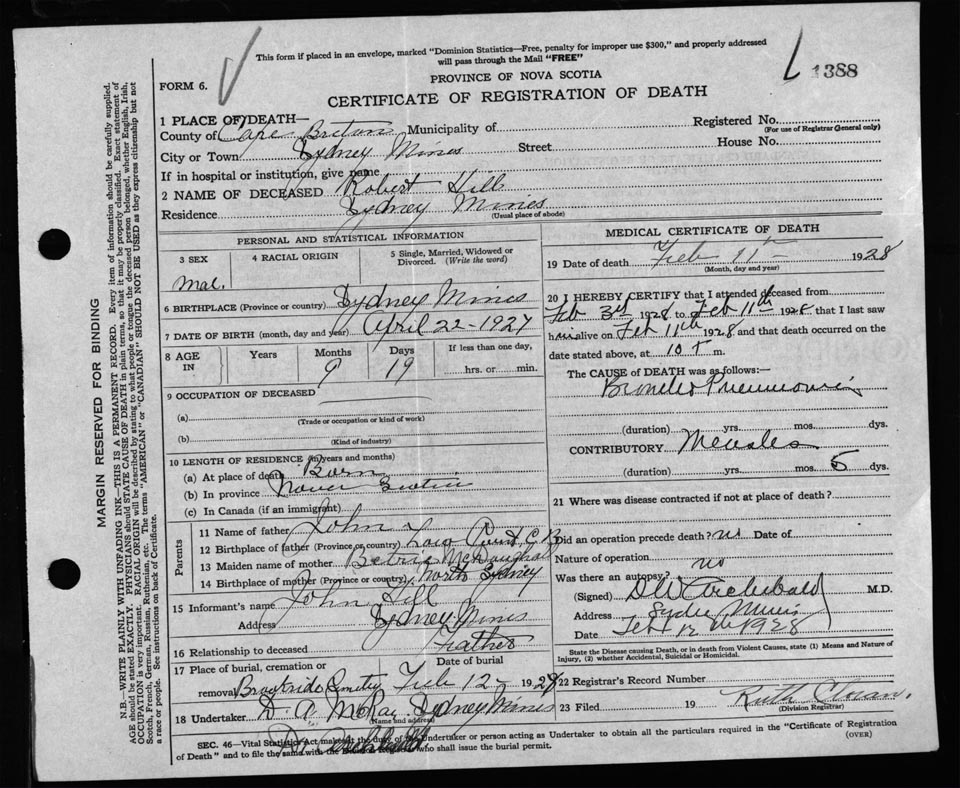 This form if placed in an envelope, marked "Dominion Statistics—Free, penalty for improper use $300," and properly addressed
will pass through the Mail "FREE"
1388
PROVINCE OF NOVA SCOTIA
FORM 6.
CERTIFICATE OF REGISTRATION OF DEATH
1 PLACE OF DEATH—
Registered No.
(For use of Registrar General only)
County of Cape Breton Municipality of
City or Town Sydney Mines Street House No.
If in hospital or institution, give name
2 NAME OF DECEASED Robert Hill
Residence Sydney Mines
(Usual place of abode)
PERSONAL AND STATISTICAL INFORMATION
3 SEX 4 RACIAL ORIGIN 5 Single, Married, Widowed or
Divorced. (Write the word)
Mal.
6 BIRTHPLACE (Province or country) Sydney Mines
7 DATE OF BIRTH (month, day and year) April 22-1927
8 AGE IN Years Months Days If less than one day,
9 19 hrs. or min.
9 OCCUPATION OF DECEASED
(a)
(Trade or occupation or kind of work)
(b)
(Kind of industry)
10 LENGTH OF RESIDENCE (in years and months)
(a) At place of death Born
(b) In province Nova Scotia
(c) In Canada (if an immigrant)
Parents
11 Name of father John
12 Birthplace of father (Province or country) Low Point C.B.
13 Maiden name of mother McDougall
14 Birthplace of mother (Province or country) North Sydney
15 Informant's name John Hill
Address Sydney Mines
16 Relationship to deceased Father
17 Place of burial, cremation or Date of burial
removal Brookside Cemetery Feb 12- 1928
18 Undertaker D. A. McKay Sydney Mines
(Name and address)
MEDICAL CERTIFICATE OF DEATH
19 Date of death Feb 11th 1928
(Month, day and year)
20 I HEREBY CERTIFY that I attended deceased from
Feb 3rd 1928 to Feb 11th 1928 that I last saw
him alive on Feb 11th 1928 and that death occurred on the
date stated above, at 10 m.
The CAUSE of DEATH was as follows:—
Broncho Pneumonia
(duration) yrs. mos. dys.
CONTRIBUTORY Measles
(duration) yrs. mos. 5 dys.
21 Where was disease contracted if not at place of death?
Did an operation precede death? no Date of
Nature of operation
Was there an autopsy? no
(Signed) Archibald M.D.
Address Sydney Mines
Date Feb 12th 1928
State the Disease causing Death, or in death from Violent Causes, state (1) Means and Nature of
Injury, (2) whether Accidental, Suicidal or Homicidal.
22 Registrar's Record Number
23 Filed 19 Ruth
(Division Registrar)
SEC. 46—Vital Statistics Act makes it the duty of the Undertaker or person acting as Undertaker to obtain all the particulars required in the "Certificate of Registration
of Death" and to file the same with the who shall issue the burial permit. (OVER)
MARGIN RESERVED FOR BINDING
N.B.—WRITE PLAINLY WITH UNFADING INK—THIS IS A PERMANENT RECORD. Every item of information should be carefully supplied.
AGE should be stated EXACTLY. PHYSICIANS should STATE CAUSE OF DEATH in plain terms, so that it may be properly classified. Exact statement of
OCCUPATION is very important. RACIAL ORIGIN will be described by stating to what people or tongue the deceased person belonged, whether English, Irish,
Scotch, French, German, Russian, Ruthenian, etc. The terms "AMERICAN" or "CANADIAN" SHOULD NOT BE USED as they express citizenship but not
a race or people. See instructions on back of Certificate.